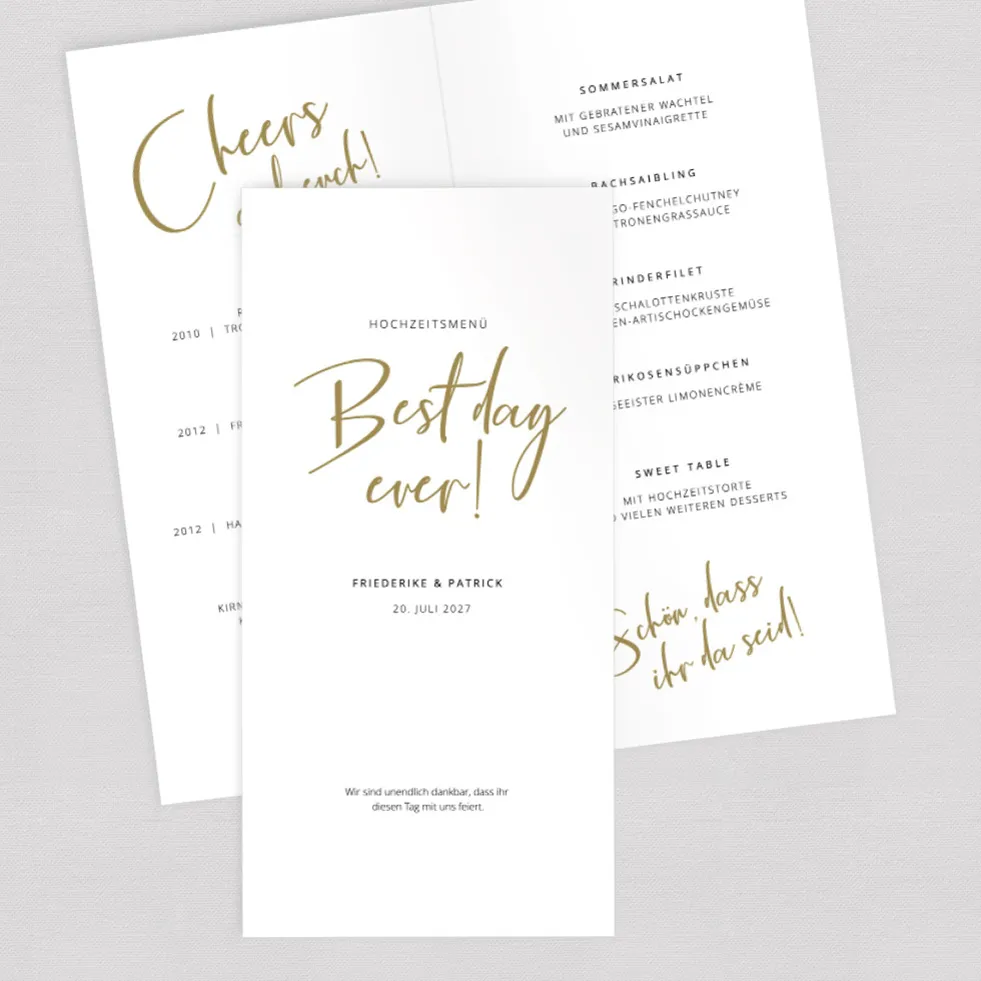 Cheers
euch!
2010 |
2012 |
2012 |
SOMMERSALAT
MIT GEBRATENER WACHTEL
UND SESAMVINAIGRETTE
BACHSAIBLING
GO-FENCHELCHUTNEY
TRONENGRASSAUCE
RINDERFILET
SCHALOTTENKRUSTE
EN-ARTISCHOCKENGEMÜSE
RIKOSENSÜPPCHEN
GEEISTER LIMONENCRÈME
SWEET TABLE
MIT HOCHZEITSTORTE
VIELEN WEITEREN DESSERTS
Schön, dass
ihr da seid!
HOCHZEITSMENÜ
Best day
ever!
FRIEDERIKE & PATRICK
20. JULI 2027
Wir sind unendlich dankbar, dass ihr
diesen Tag mit uns feiert.